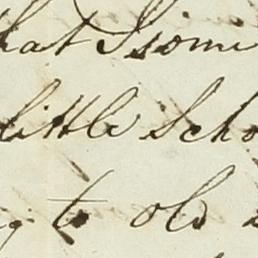 hat I some
little Scho
g to old